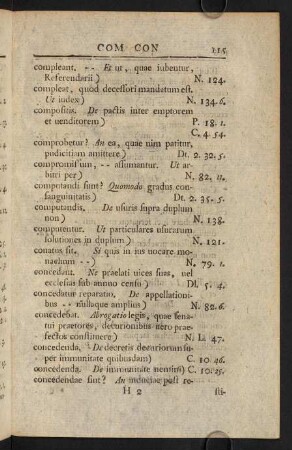 COM CON 115
compleant. -- Et ut, quae iubentur,
Referendarii) N. 124.
compleat, quod decessori mandatum est.
Ut index) N. 134. 6.
compositis. De pactis inter emptorem
et uenditorem) P. 18. 1.
C. 4. 54.
comprobetur? An ea, quae uim patitur,
pudicitiam amittere) Dt. 2. 32. 5.
compromissum, -- assumantur. Ut ar-
bitri per) N. 82. 11.
computandi sunt? Quomodo gradus con-
sanguinitatis) Dt. 2. 35. 5.
computandis. De usuris supra duplum
non) N. 138.
computentur. Ut particulares usurarum
solutiones in duplum) N. 121.
conatus sit. Si quis in ius uocare mo-
nachum --) N. 79. 1.
concedant. Ne praelati uices suas, uel
ecclesias sub annuo censu) Dl. 5. 4.
concedatur reparatio. De appellationi-
bus -- nullaque amplius) N. 82. 6.
concedebat. Abrogatio legis, quae sena-
tui praetores, decurionibus uero prae-
fectos constituere) N. L. 47.
concedenda. De decretis decurionum su-
per immunitate quibusdam) C. 10. 46.
concedenda. De immunitate nemini) C. 10. 25.
concedendae sint? An induciae post re-
H 2 sti-